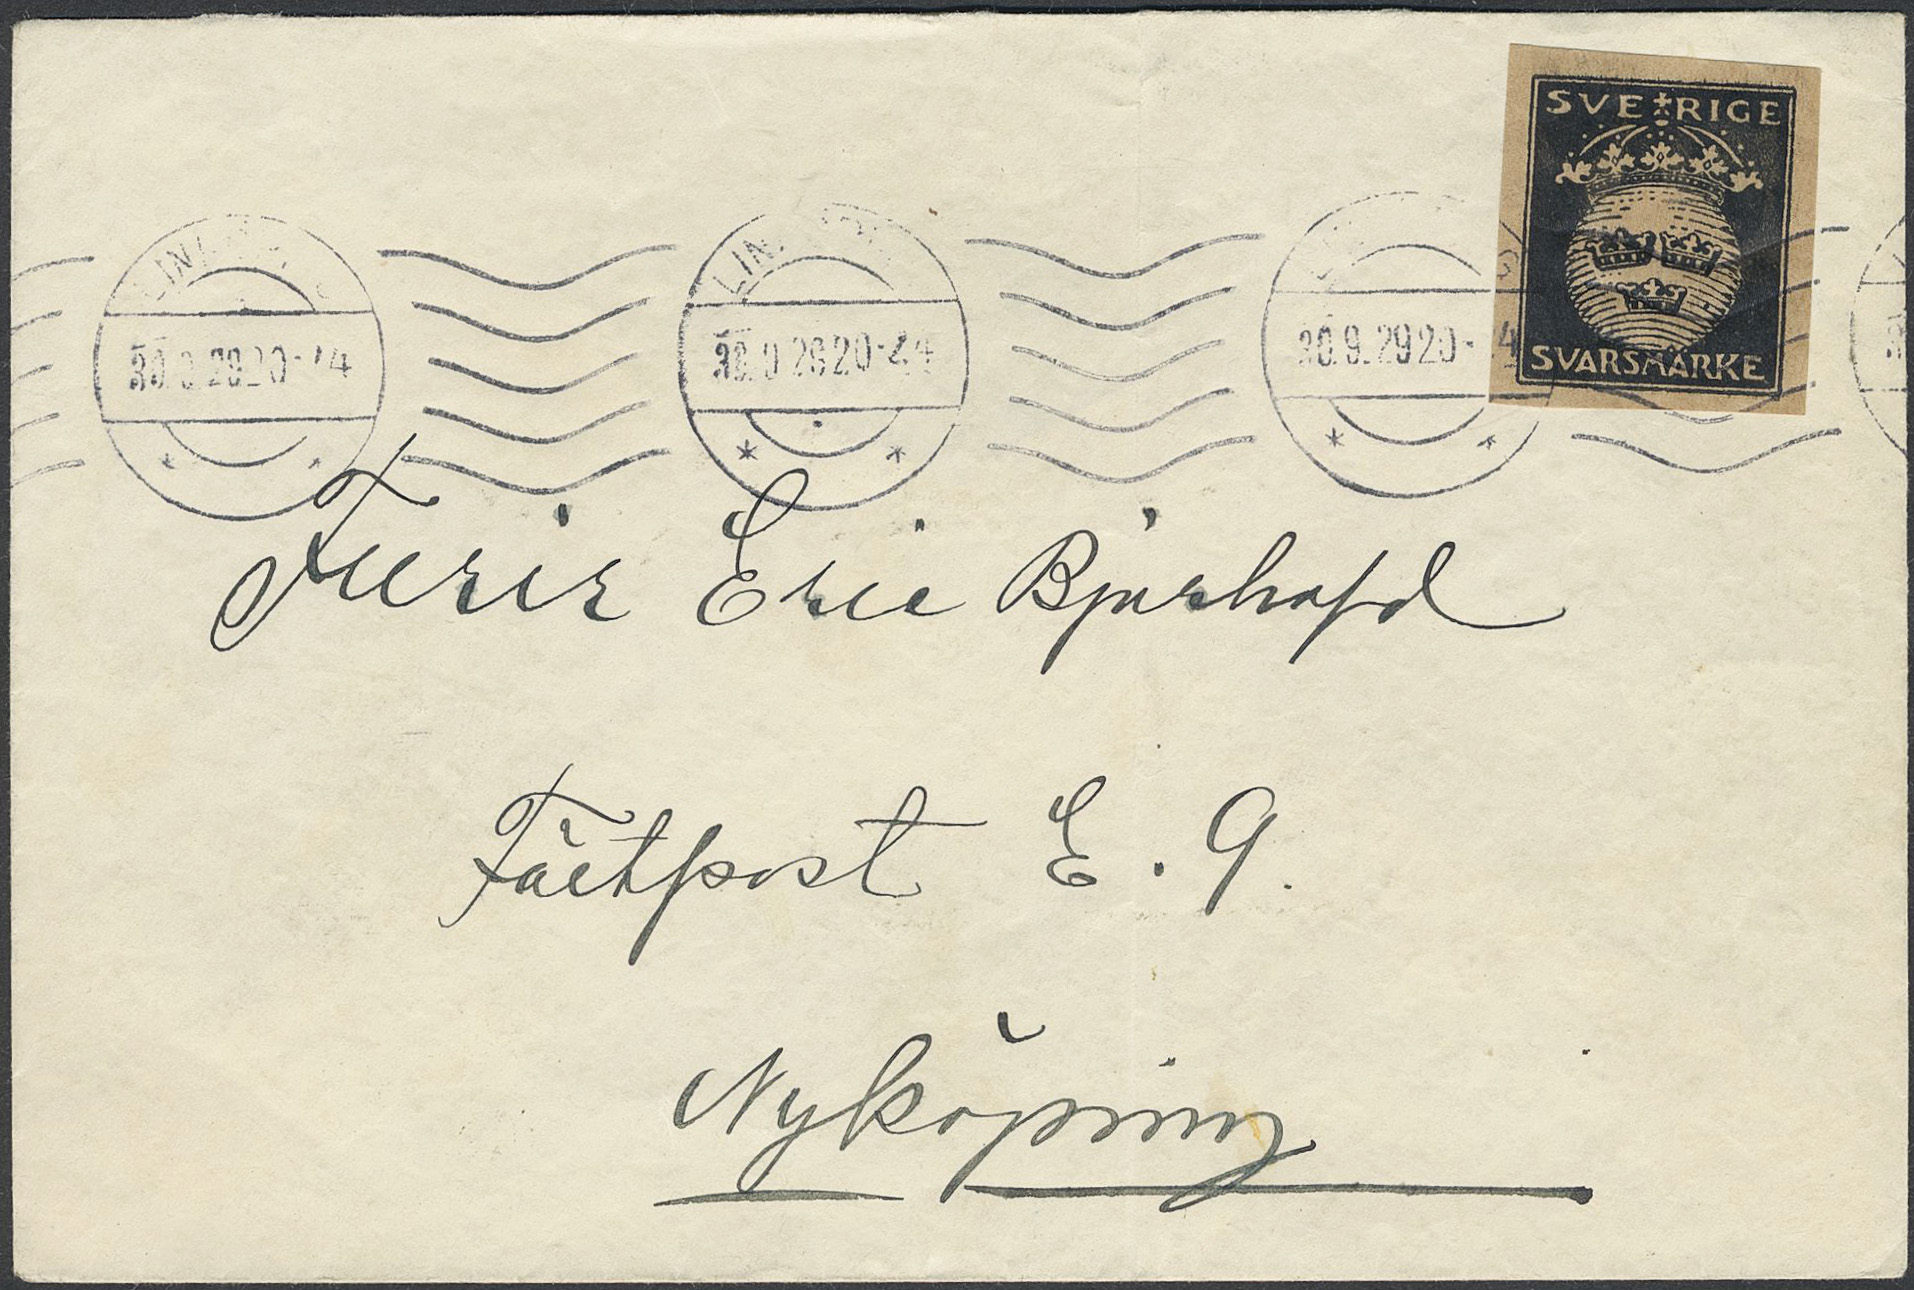 SVERIGE
SVARSMÄRKE
30.9.29 20-24
30.9.29 20-24
30.9.29 20-24
Furir Eric
Fältpost E. 9.
Nyköping